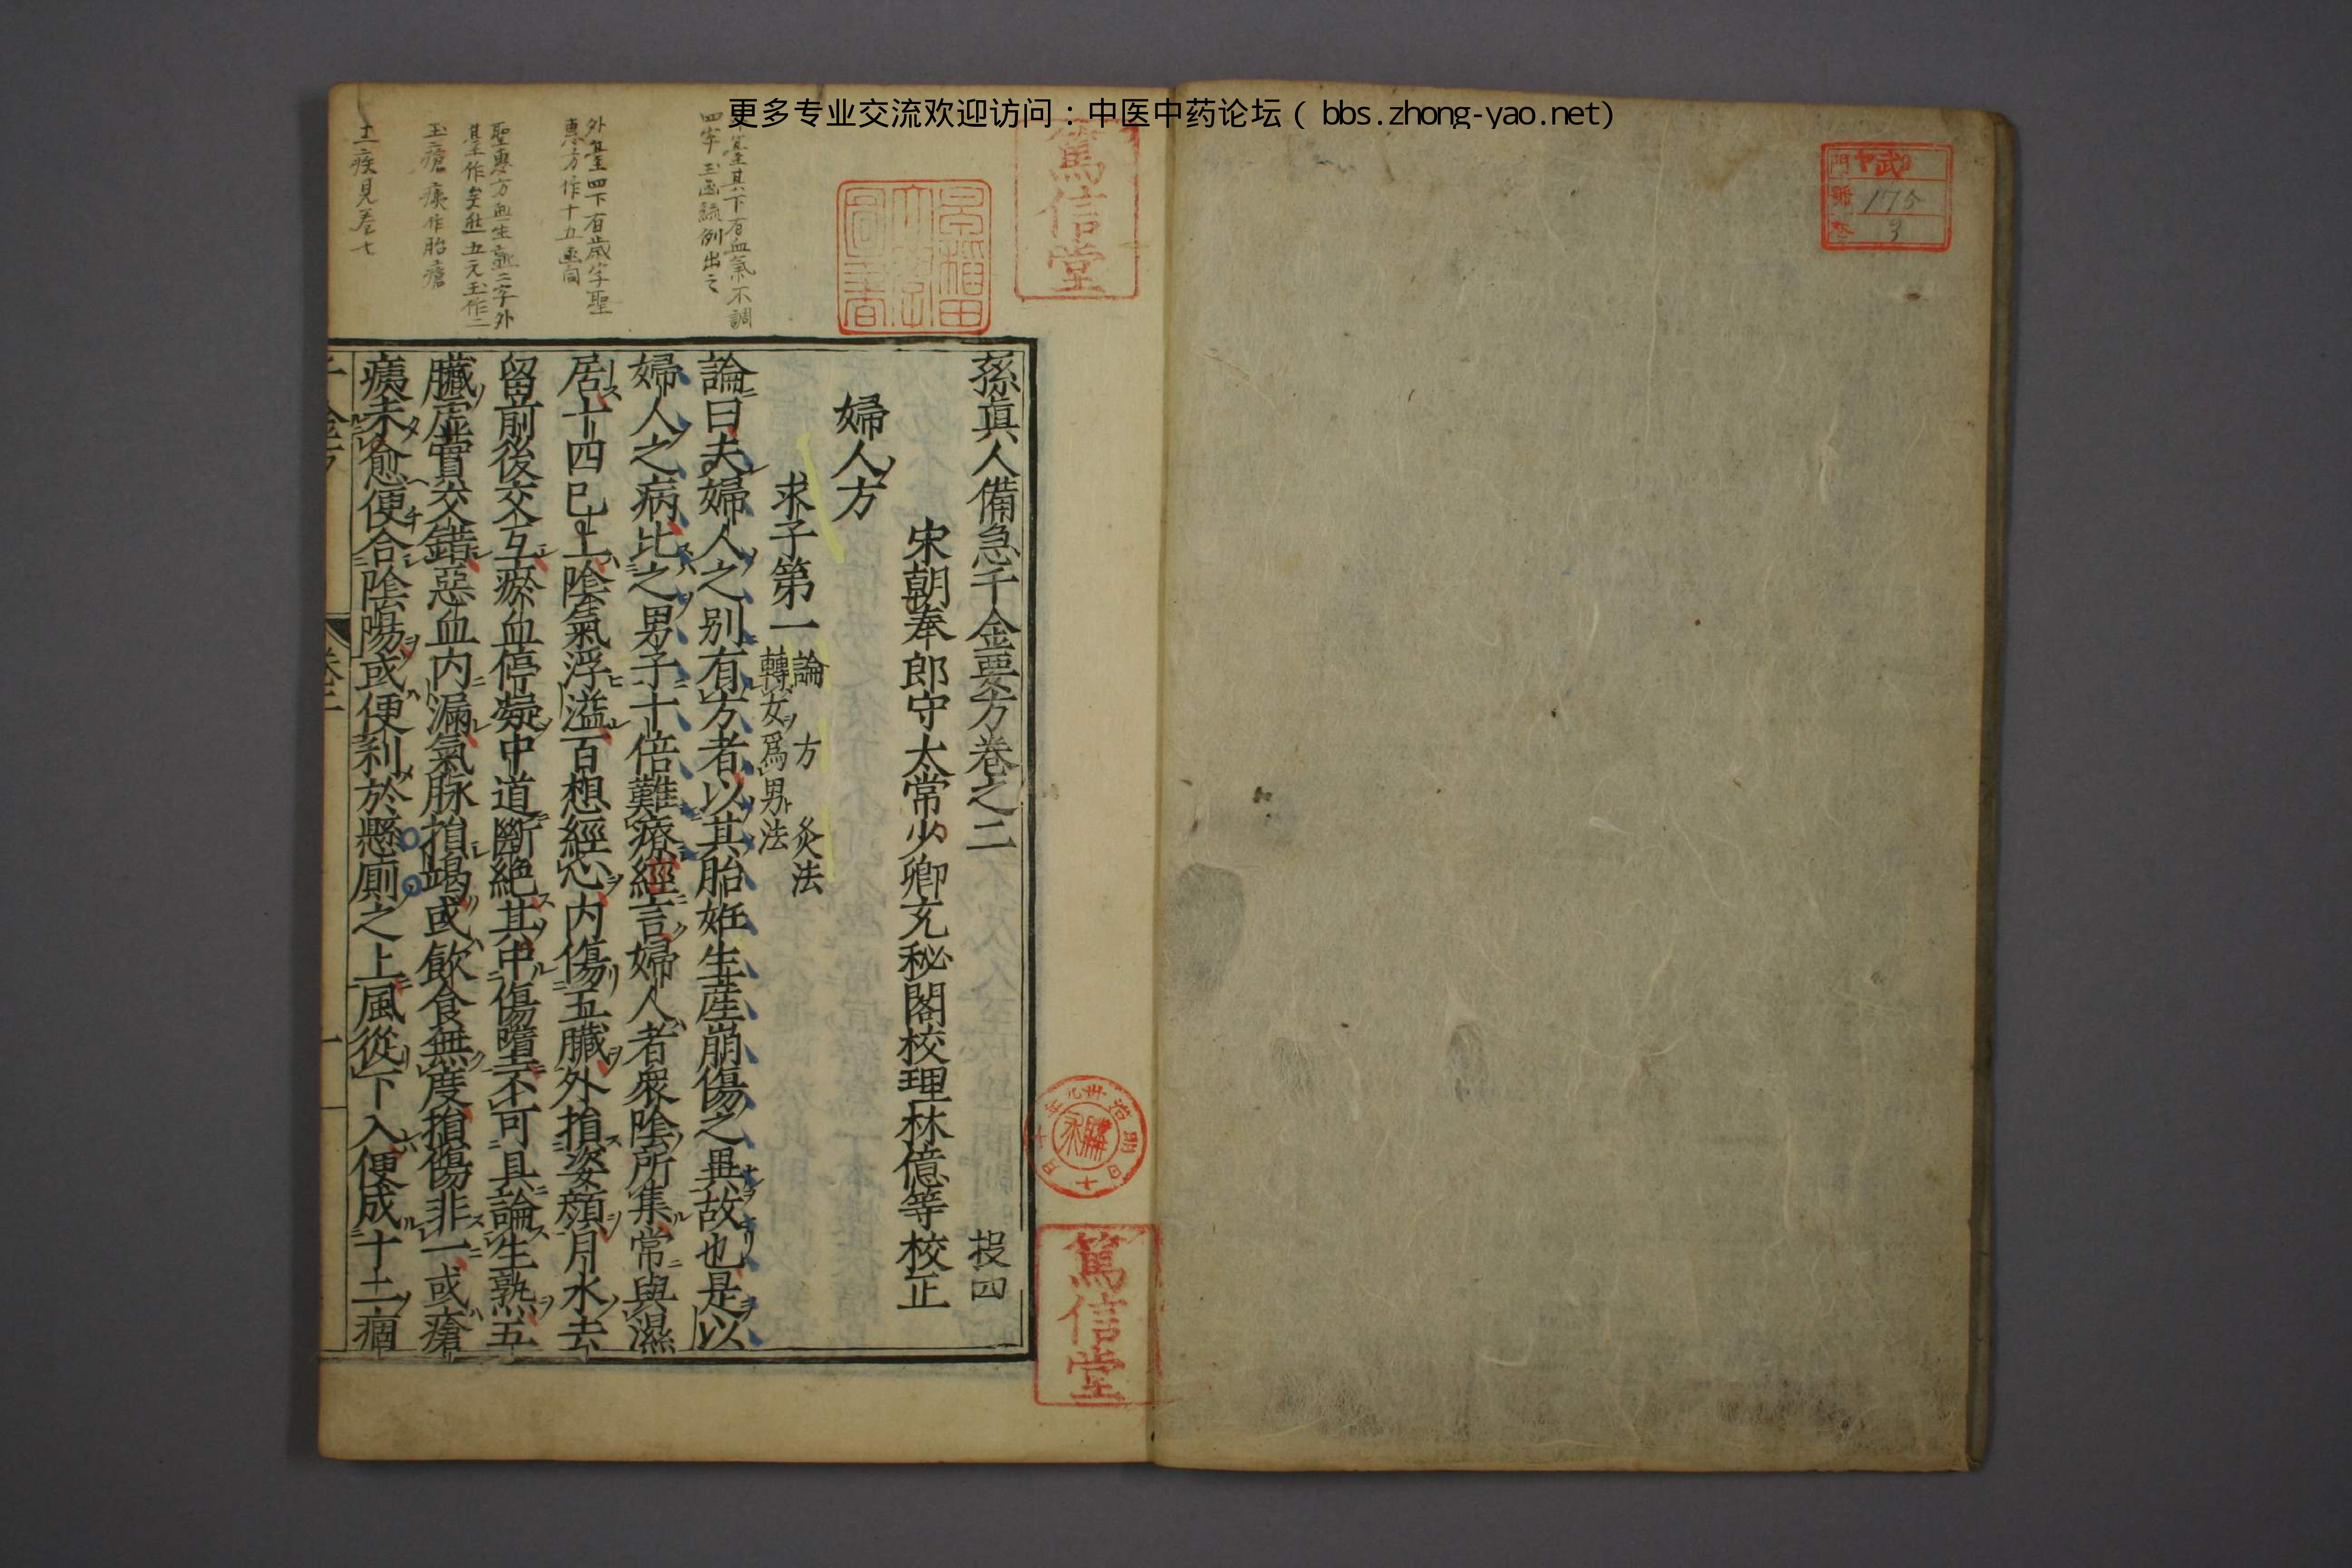 更多专业交流欢迎访问：中医中药论坛（bbs.zhong-yao.net）
門
號 175
3
篤信堂
孫真人備急千金要方卷之二 投四
宋朝奉郎守太常少卿充秘閣校理林億等校正
婦人方
求子第一 論 方 灸法
轉女爲男法
論曰夫婦人之別有方者以其胎姙生産崩傷之異故也是以
婦人之病比之男子十倍難療經言婦人者衆陰所集常與濕
居十四已上陰氣浮溢百想經心内傷五臟外損姿顔月水去
留前後交互瘀血停凝中道斷絶其中傷墮不可具論生熟五
臟虚實交錯惡血内漏氣脉損竭或飲食無度損傷非一或瘡
痍未愈便合陰陽或便利於懸厠之上風從下入便成十二痼
其下有血氣不調
四字
外臺四下有歳字聖
惠方作十五
聖惠方血生
玉瘡痍作胎瘡
疾見卷七
早稲田大學圖書
明治
十
篤信堂